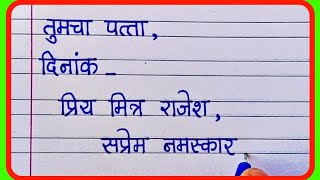 तुमचा पत्ता,
दिनांक -
प्रिय मित्र राजेश,
सप्रेम नमस्कार